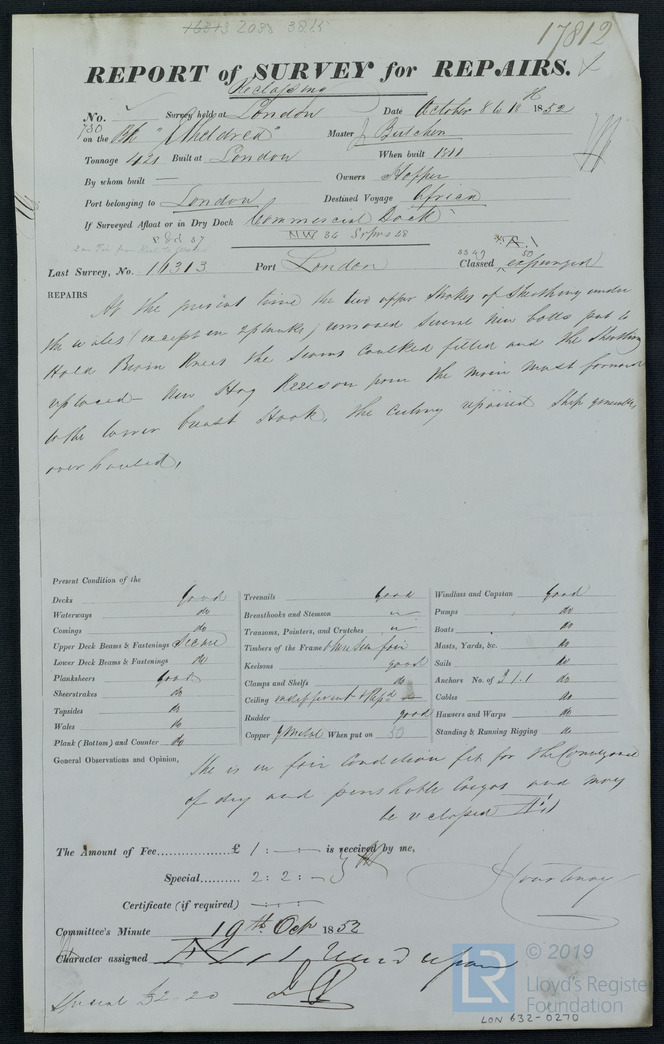 16313 2038 3815
17812
REPORT of SURVEY for REPAIRS.
Reclassing
No. 730 Survey held at London Date October 8 to 18th 1852
on the Bk "Mildred" Master J Butchen
Tonnage 421 Built at London When built 1811
By whom built — Owners Hopper
Port belonging to London Destined Voyage Africa
If Surveyed Afloat or in Dry Dock Commercial Dock
Last Survey, No. 16313 Port London Classed expunged
REPAIRS At the present time the two upper strakes of Sheathing under
the wales (except in removed several new bolts put to
Hold Beam Knees the seams caulked filled and the Sheathing
replaced – New Hog Keelson from the main mast forward
to the lower breast Hook, the ceiling repaired Ship generally
overhauled,
Present Condition of the
Decks good
Waterways do
Comings do
Upper Deck Beams & Fastenings Secure
Lower Deck Beams & Fastenings do
Planksheers good
Sheerstrakes do
Topsides do
Wales do
Plank (Bottom) and Counter do
Treenails good
Breasthooks and Stemson
Transoms, Pointers, and Crutches
Timbers of the Frame when seen fair
Keelsons good
Clamps and Shelfs do
Ceiling indifferent & Repd
Rudder good
Copper Y Metal When put on 50
Windlass and Capstan good
Pumps do
Boats do
Masts, Yards, &c. do
Sails do
Anchors No. of 3.1.1 do
Cables do
Hawsers and Warps do
Standing & Running Rigging do
General Observations and Opinion, She is in fair condition fit for the Conveyance
of dry and perishable Cargos and may
be reclassed
The Amount of Fee £ 1 : is received by me,
Special 2 : 2 : –
J Courtenay
Certificate (if required)
Committee's Minute 19th Oct 1852
Character assigned
Special £2.2.0
© 2019
LR
Lloyd's Register
Foundation
LON 632-0270